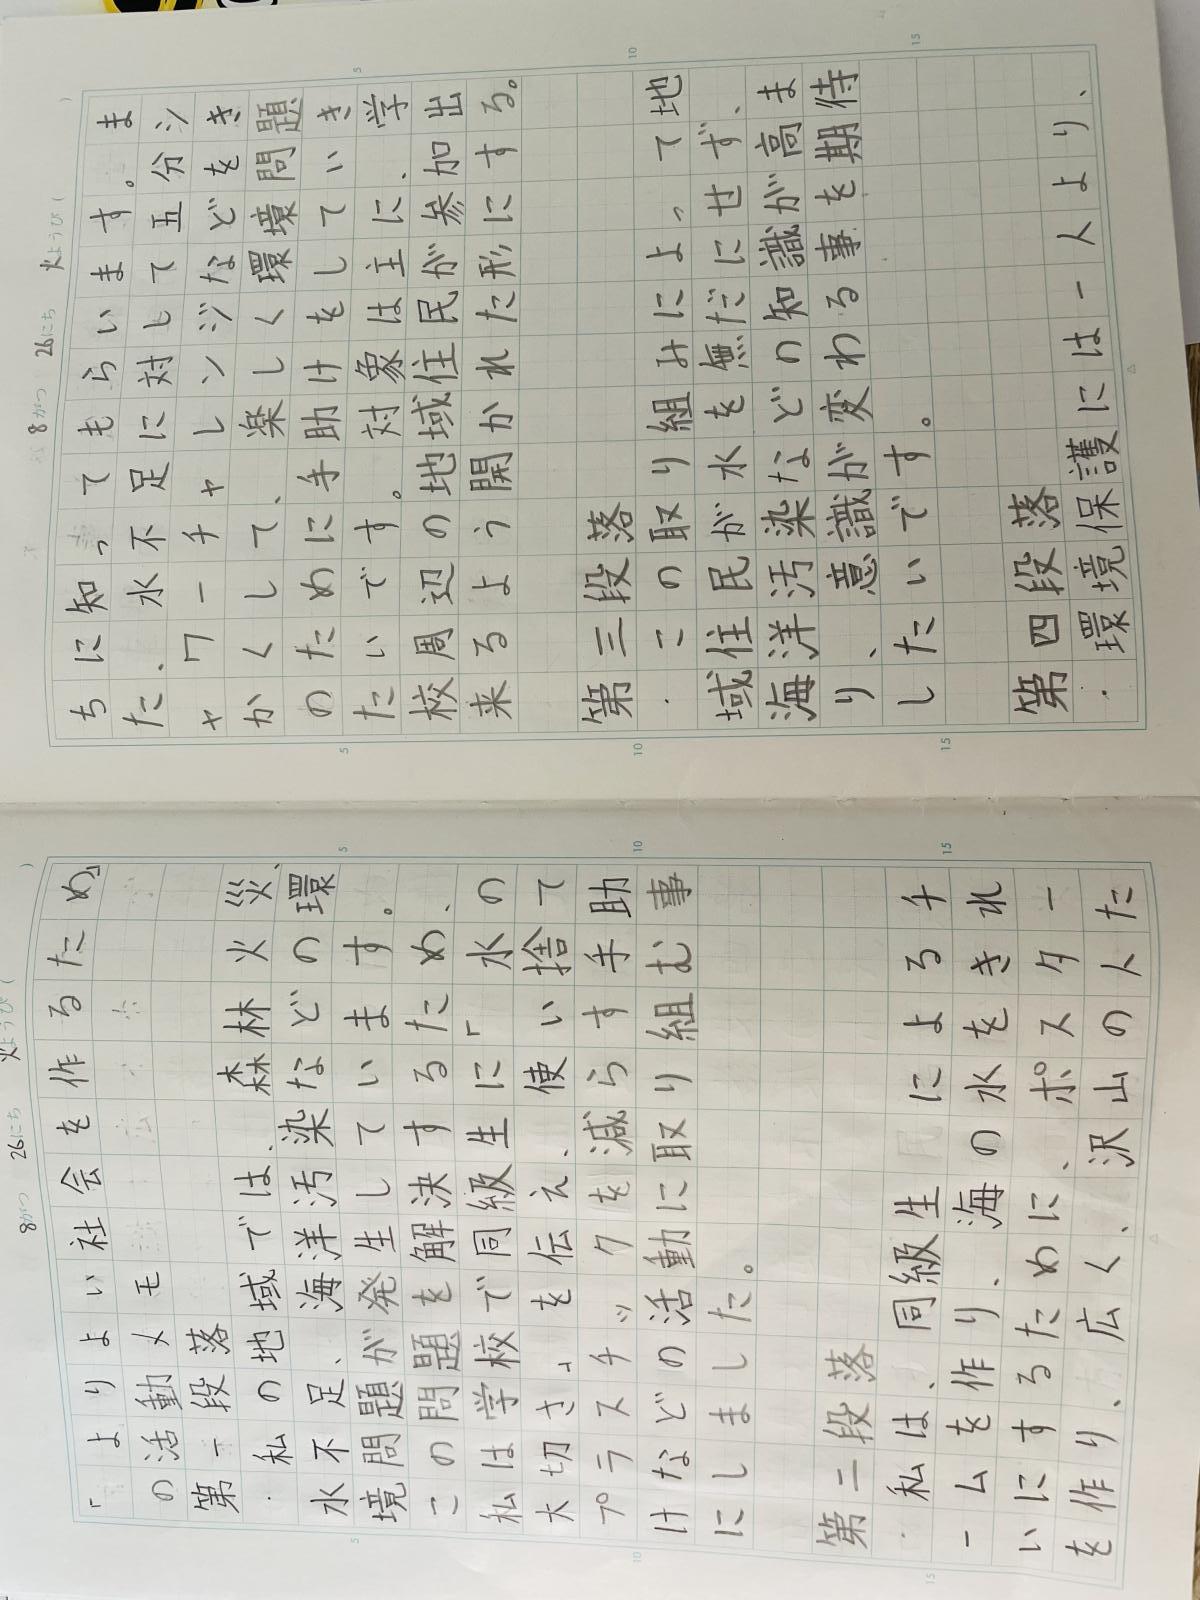 8がつ 26にち 火ようび ( )
「よりよい社会を作るため」
の活動メモ
第一段落
・私の地域では、森林火災、
水不足、海洋汚染などの環
境問題が発生しています。
この問題を解決するため、
私は学校で同級生に「水の
大切さ」を伝え、使い捨て
プラスチックを減らす手助
けなどの活動に取り組む事
にしました。
第二段落
・私は、同級生によるチ
ームを作り、海の水をきれ
いにするために、ポスター
を作り、広く、沢山の人た
5
10
15
8がつ 26にち 火ようび ( )
ちに知ってもらいます。ま
た、水不足に対して五分シ
ャワーチャレンジなどをき
かくして、楽しく環境問題
のために手助けをしていき
たいです。対象は主に、学
校周辺の地域住民が参加出
来るよう開かれた形にする。
第三段落
・この取り組みによって地
域住民が水を無だにせず、
海洋汚染などの知識が高ま
り、意識が変わる事を期待
したいです。
第四段落
・環境保護には一人より、
5
10
15